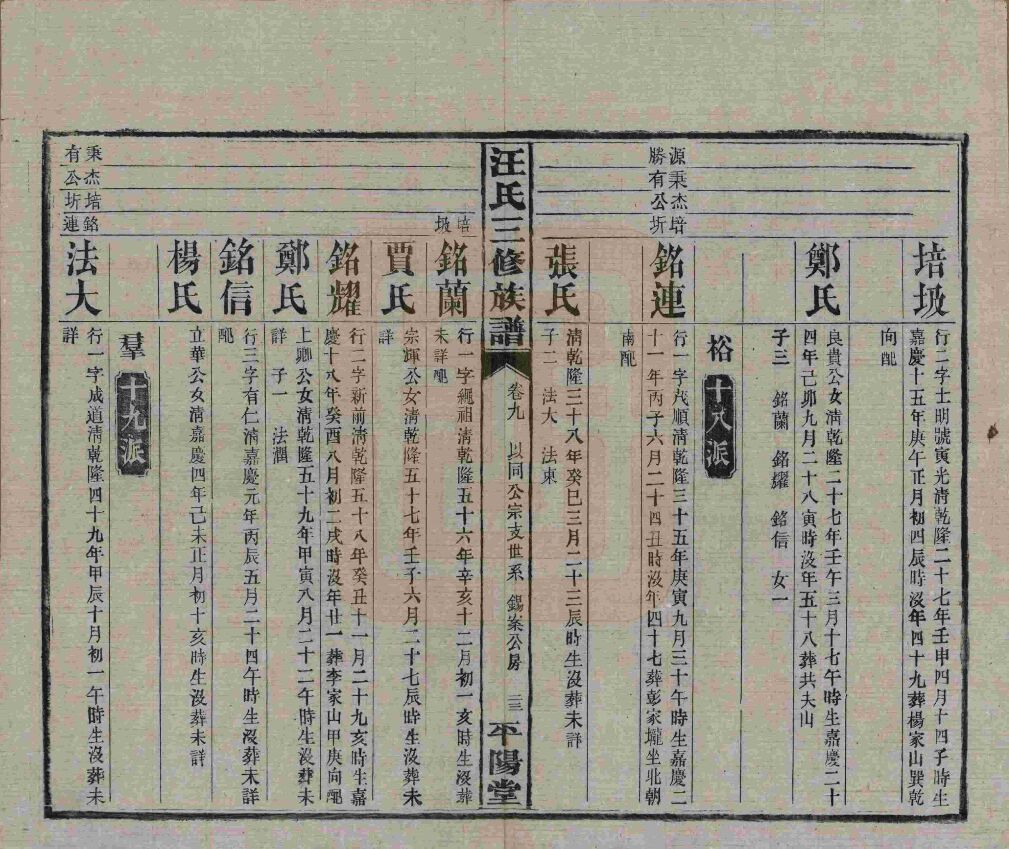 培圾
行二字士明號寅光清乾隆二十七年壬申四月十四子時生
嘉慶十五年庚午正月初四辰時沒年四十九葬楊家山巽乾
向配
鄭氏
良貴公女清乾隆二十七年壬午三月十七午時生嘉慶二十
四年己卯九月二十八寅時沒年五十八葬共夫山
子三 銘蘭 銘燿 銘信 女一
裕 十八派
源秉杰培
勝有公圻
銘連
行一字茂順清乾隆三十五年庚寅九月三十午時生嘉慶二
十一年丙子六月二十四丑時沒年四十七葬彭家壠坐北朝
南配
張氏
清乾隆三十八年癸巳三月二十三辰時生沒葬未詳
子二 法大 法東
汪氏三修族譜
卷九 以同公宗支世系 錫案公房 三三
平陽堂
培
圾
銘蘭
行一字繩祖清乾隆五十六年辛亥十二月初一亥時生沒葬
未詳配
賈氏
宗輝公女清乾隆五十七年壬子六月二十七辰時生沒葬未
詳
銘燿
行二字新前清乾隆五十八年癸丑十一月二十九亥時生嘉
慶十八年癸酉八月初二戌時沒年廿一葬李家山甲庚向配
鄭氏
上卿公女清乾隆五十九年甲寅八月二十二午時生沒葬未
詳 子一 法潤
銘信
行三字有仁清嘉慶元年丙辰五月二十四午時生沒葬未詳
配
楊氏
立華公女清嘉慶四年己未正月初十亥時生沒葬未詳
羣 十九派
秉杰培銘
有公圻連
法大
行一字成道清乾隆四十九年甲辰十月初一午時生沒葬未
詳